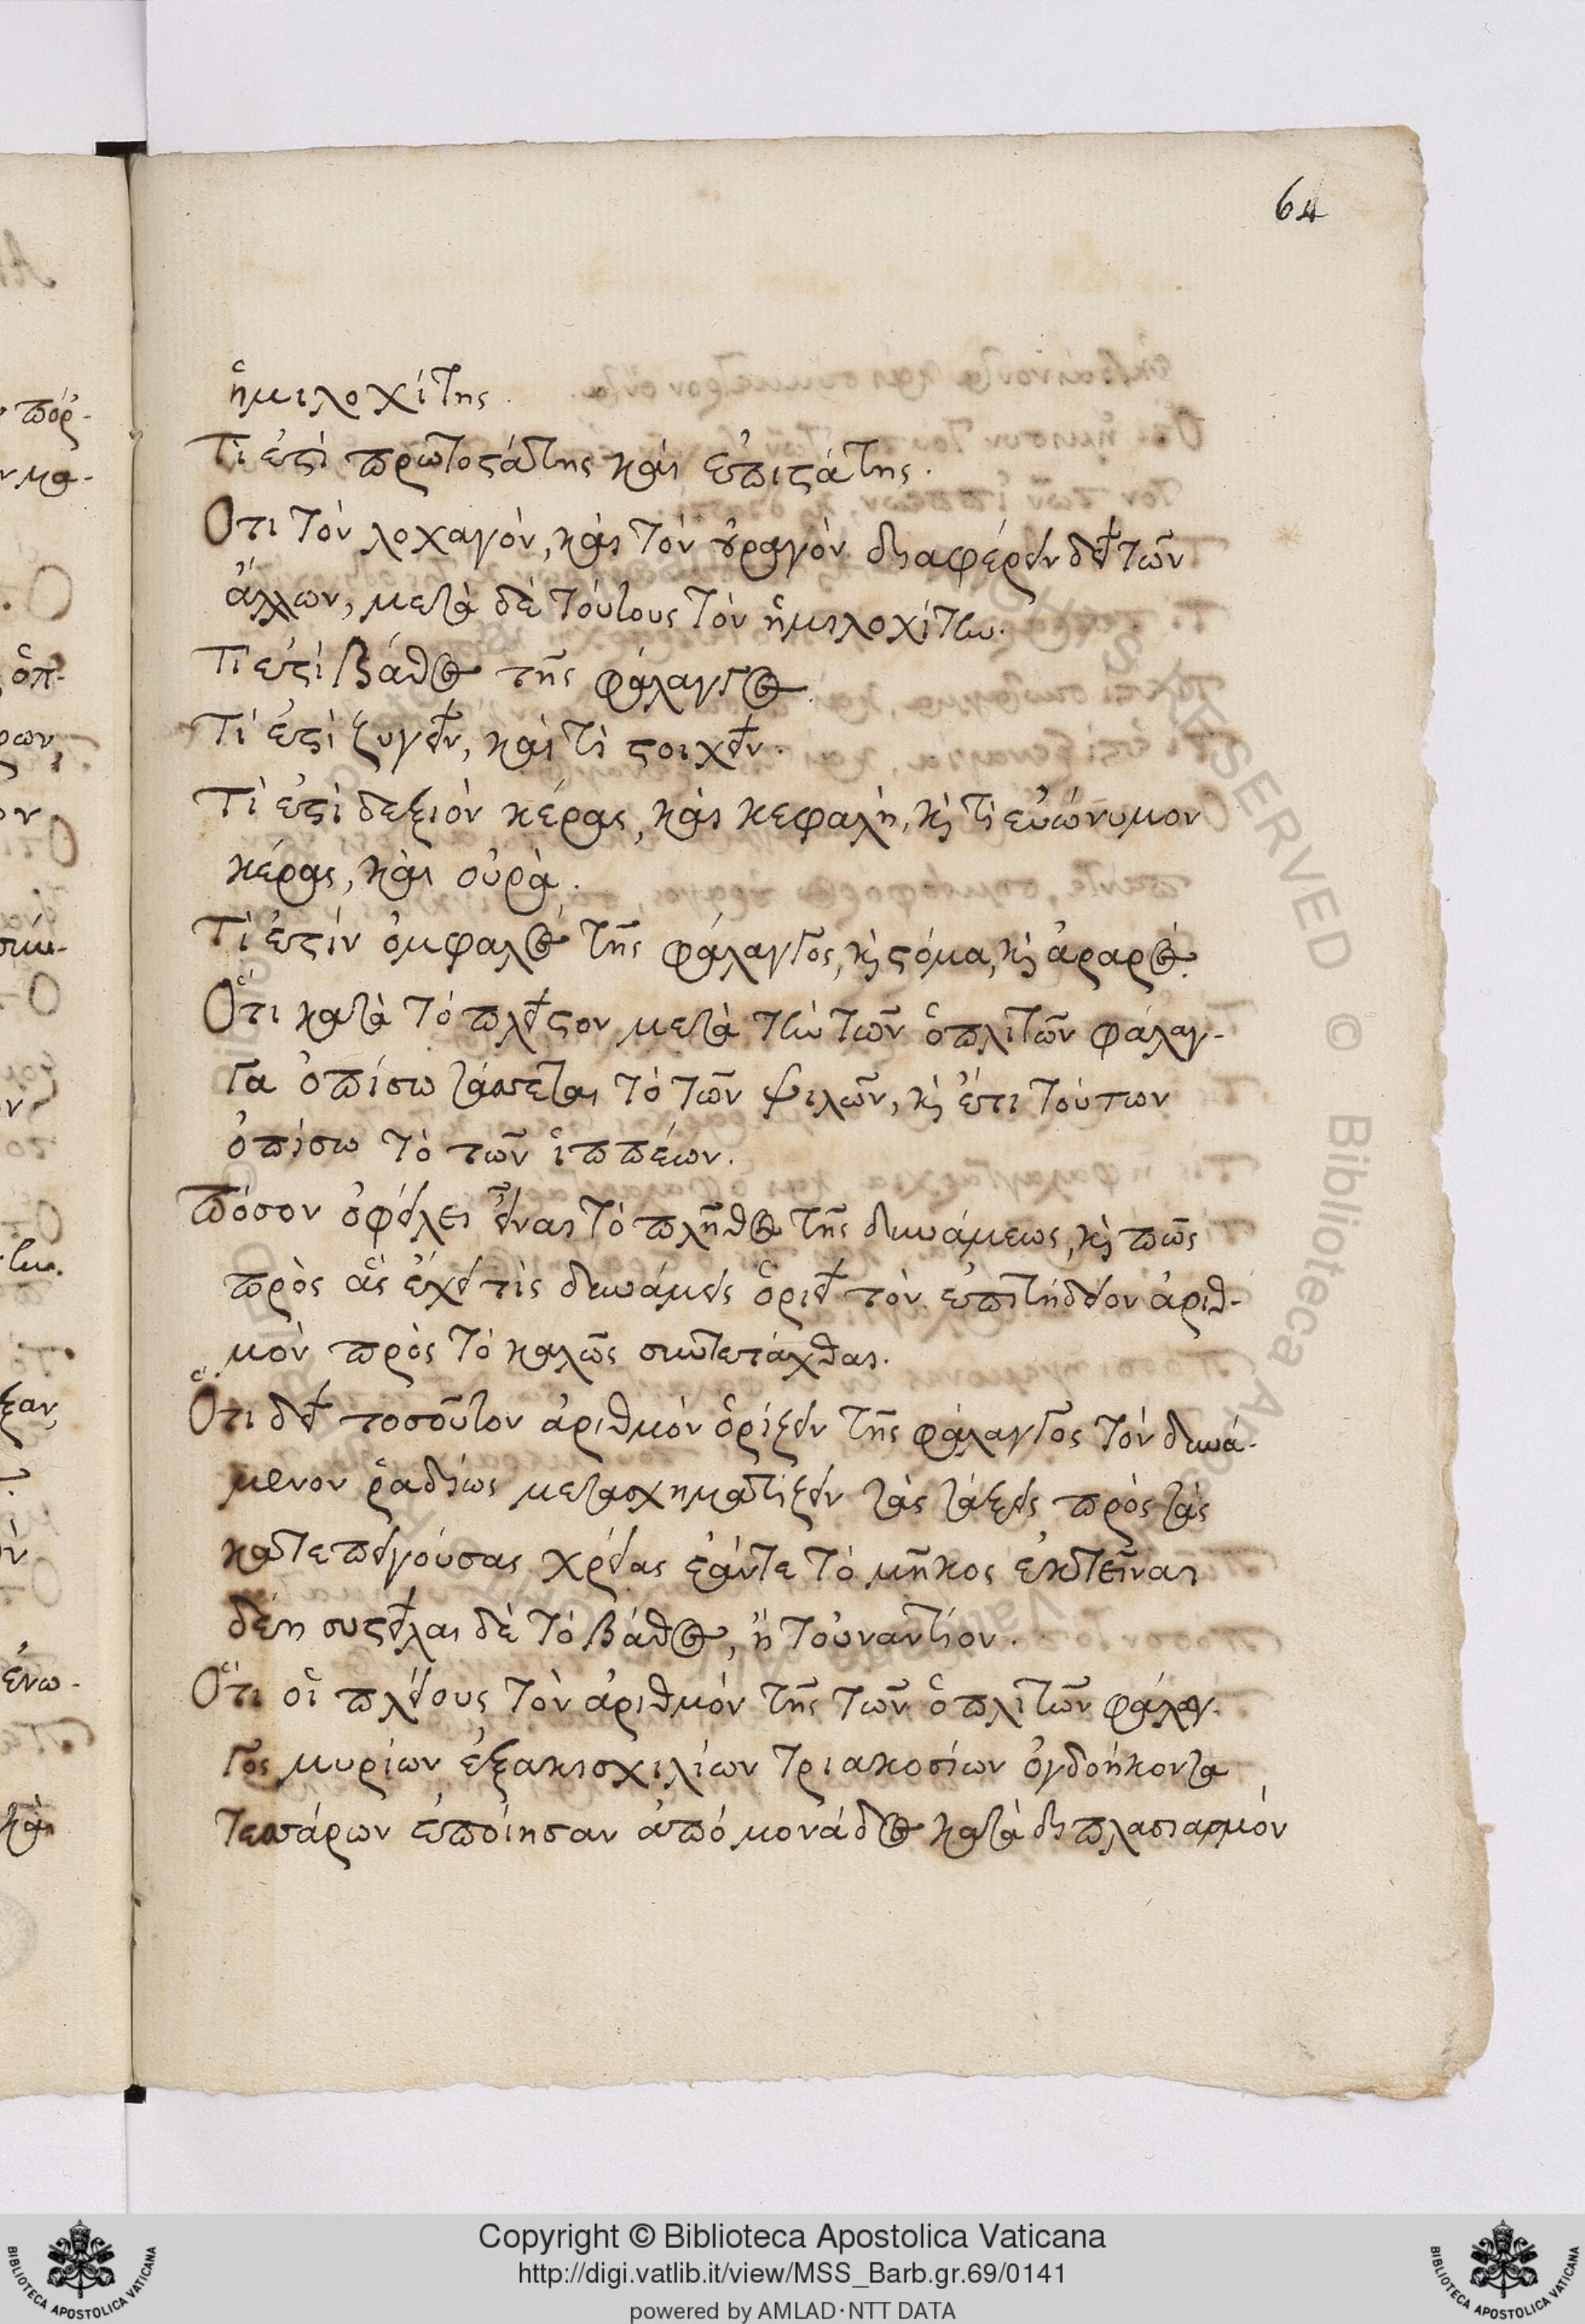 64
ἡμιλοχίτης.
Τί ἐστὶ πρωτοστάτης καὶ ἐπιστάτης.
Ὅτι τὸν λοχαγὸν, καὶ τὸν οὐραγὸν διαφέρειν δεῖ τῶν
ἄλλων, μετὰ δὲ τούτους τὸν ἡμιλοχίτην.
Τί ἐστὶ βάθος τῆς φάλαγγος.
Τί ἐστὶ ζυγεῖν, καὶ τὶ στοιχεῖν.
Τί ἐστὶ δεξιὸν κέρας, καὶ κεφαλὴ, καὶ τὶ εὐώνυμον
κέρας, καὶ οὐρὰ.
Τί ἐστὶν ὀμφαλὸς τῆς φάλαγγος, καὶ στόμα, καὶ ἀραρὸς.
Ὅτι κατὰ τὸ πλεῖστον μετὰ τὴν τῶν ὁπλιτῶν φάλαγ-
γα ὀπίσω τάσσεται τὸ τῶν ψιλῶν, καὶ ἔτι τούτων
ὀπίσω τὸ τῶν ἱππέων.
Πόσον ὀφείλει εἶναι τὸ πλῆθος τῆς δυνάμεως, καὶ πῶς
πρὸς ἃς ἔχει τὶς δυνάμεις ὁριεῖ τὸν ἐπιτήδειον ἀριθ-
μὸν πρὸς τὸ καλῶς συντετάχθαι.
Ὅτι δεῖ τοσοῦτον ἀριθμὸν ὁρίζειν τῆς φάλαγγος τὸν δυνά-
μενον ῥαδίως μετασχηματίζειν τὰς τάξεις πρὸς τὰς
κατεπειγούσας χρείας ἐάντε τὸ μῆκος ἐκτεῖναι
δέῃ συστεῖλαι δὲ τὸ βάθος, ἢ τοὐναντίον.
Ὅτι οἱ πλείους τὸν ἀριθμὸν τῆς τῶν ὁπλιτῶν φάλαγ-
γος μυρίων ἑξακισχιλίων τριακοσίων ὀγδοήκοντα
τεσσάρων ἐποίησαν ἀπὸ μονάδος κατὰ διπλασιασμὸν
Copyright © Biblioteca Apostolica Vaticana
http://digi.vatlib.it/view/MSS_Barb.gr.69/0141
powered by AMLAD·NTT DATA
BIBLIOTECA APOSTOLICA VATICANA
BIBLIOTECA APOSTOLICA VATICANA